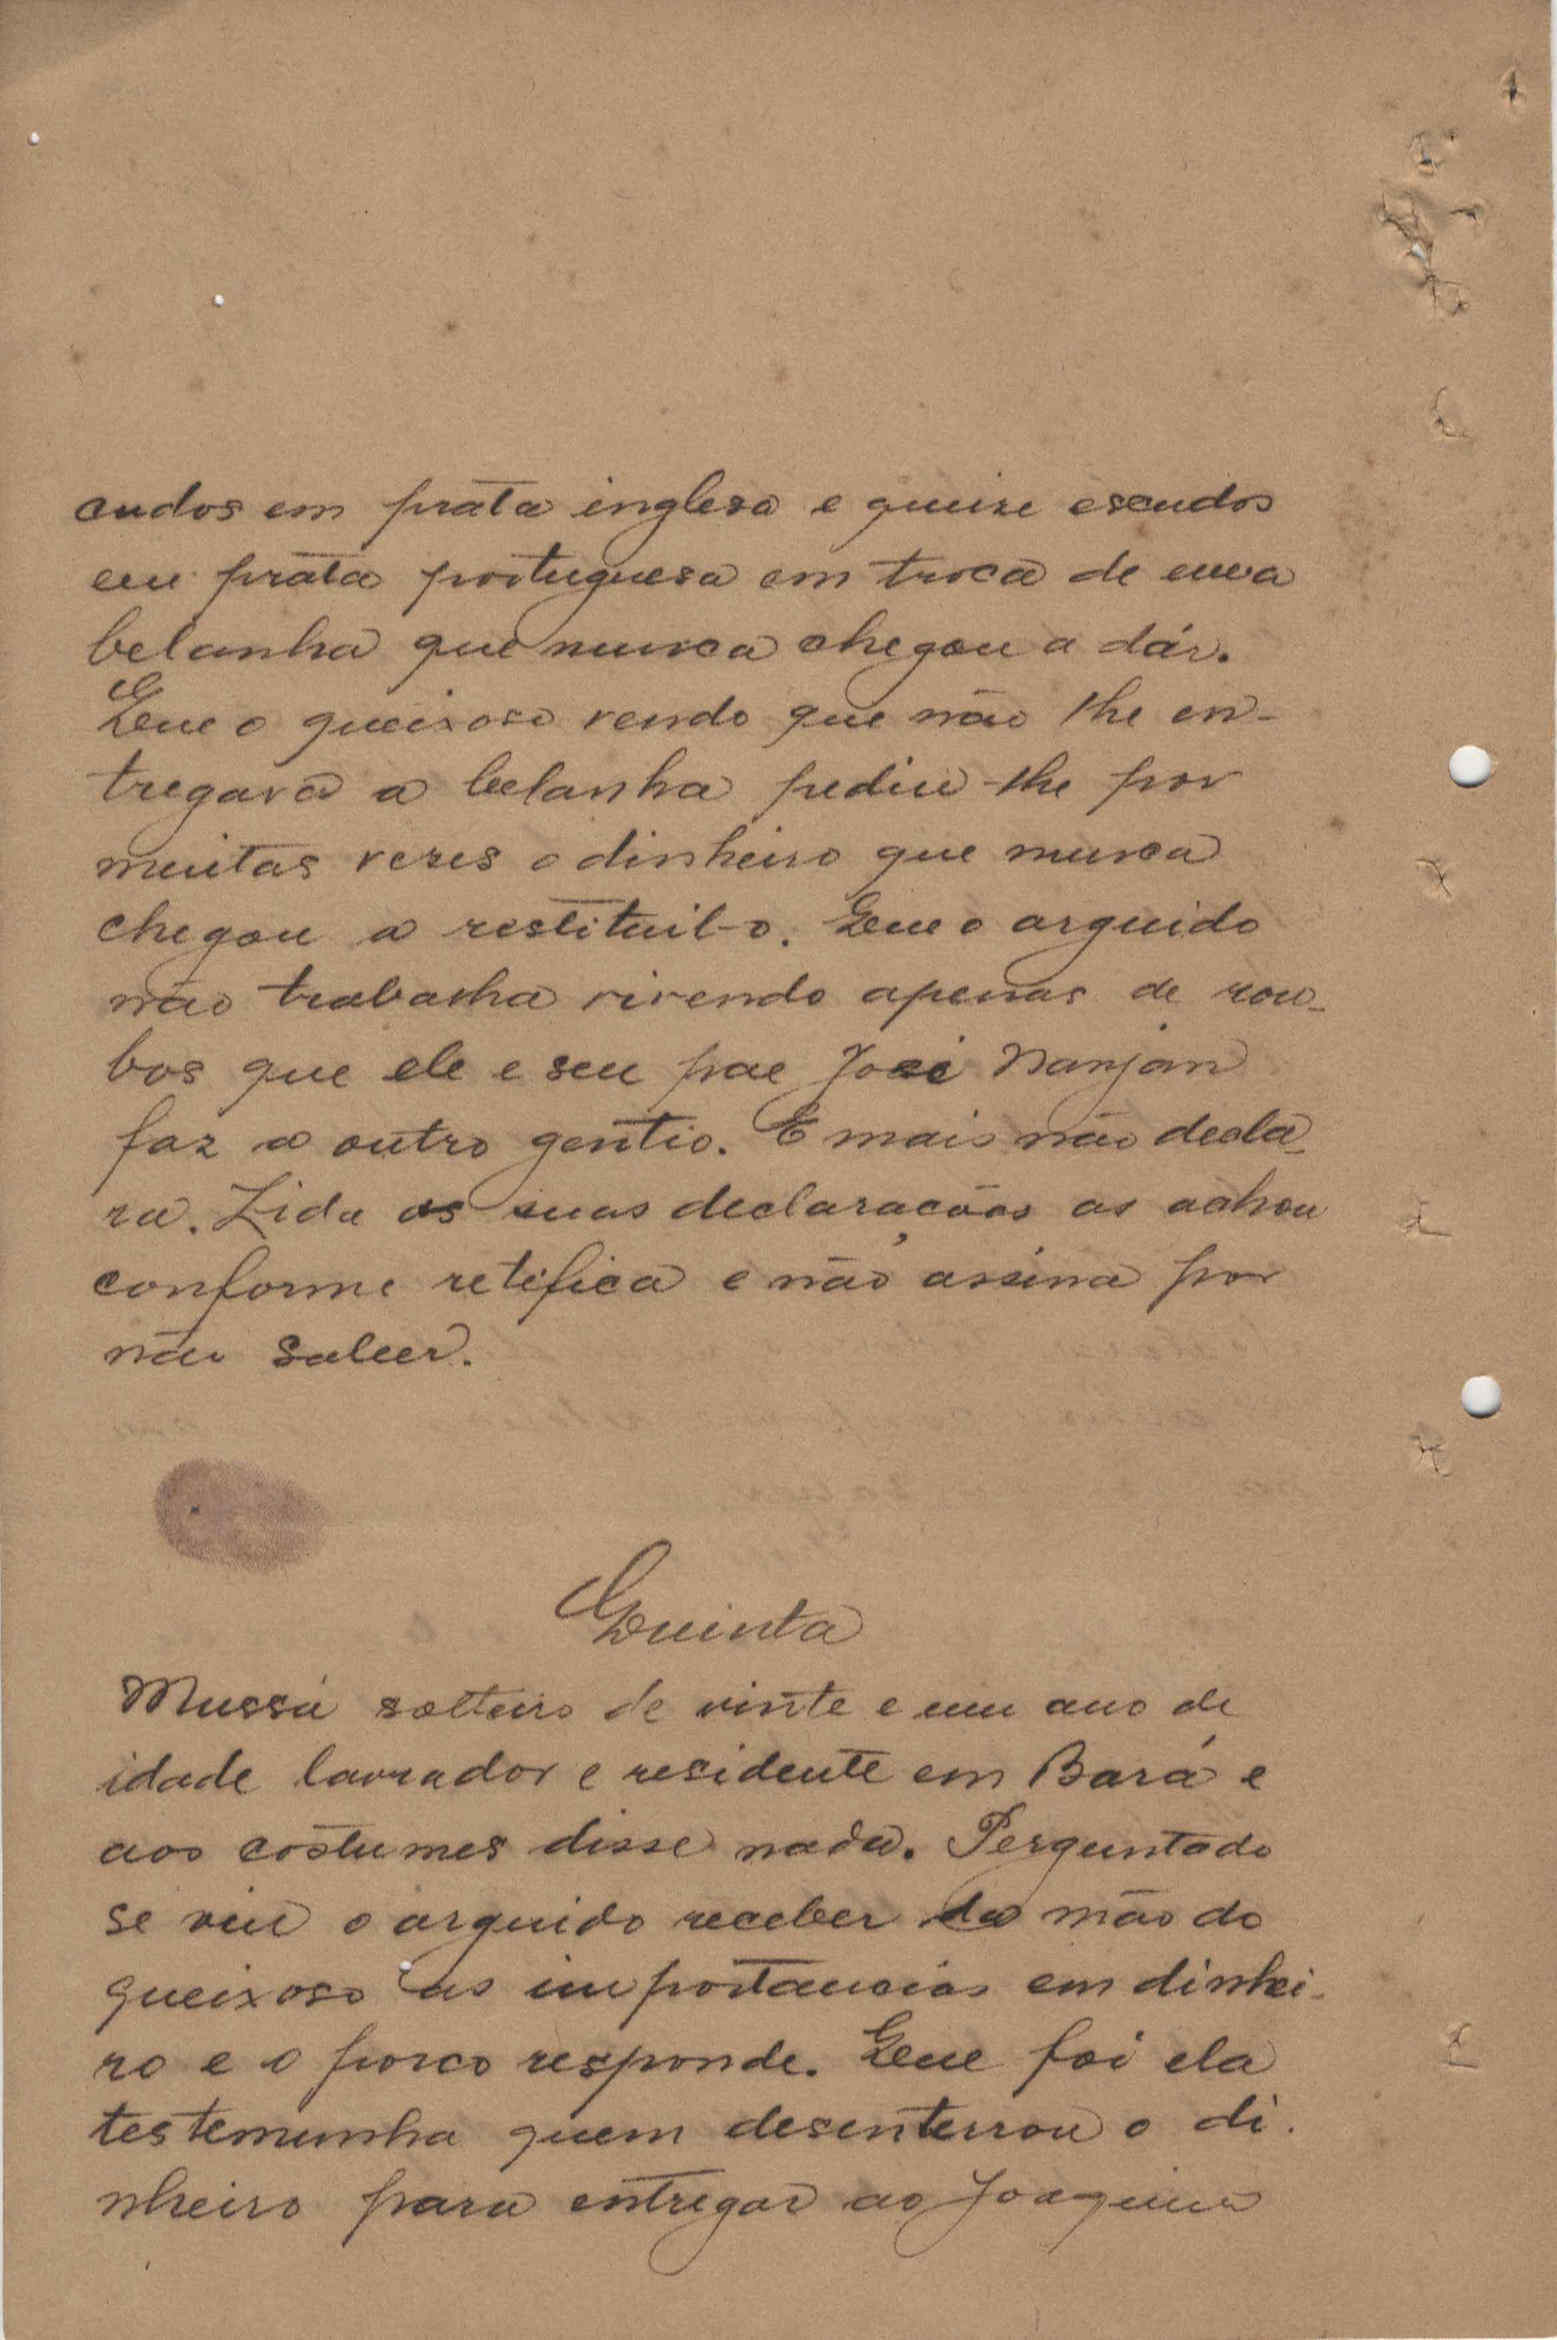 cudos em prata inglesa e quinze escudos
em prata portuguesa em troca de uma
belanha que nunca chegou a dár.
Que o queixoso vendo que não lhe en-
tregava a belanha pediu-lhe por
muitas vezes o dinheiro que nunca
chegou a restituil-o. Que o arguido
não trabalha vivendo apenas de rou-
bos que ele e seu pae José Nanjan
faz a outro gentio. E mais não decla-
ra. Lida as suas declarações as achou
conforme retifica e não assina por
não saber.
Quinta
Mussá solteiro de vinte e um ano de
idade lavrador e residente em Bará e
aos costumes disse nada. Perguntado
se viu o arguido receber da mão do
queixoso as importancias em dinhei-
ro e o porco responde. Que foi ela
testemunha quem desenterrou o di-
nheiro para entregar ao Joaquim